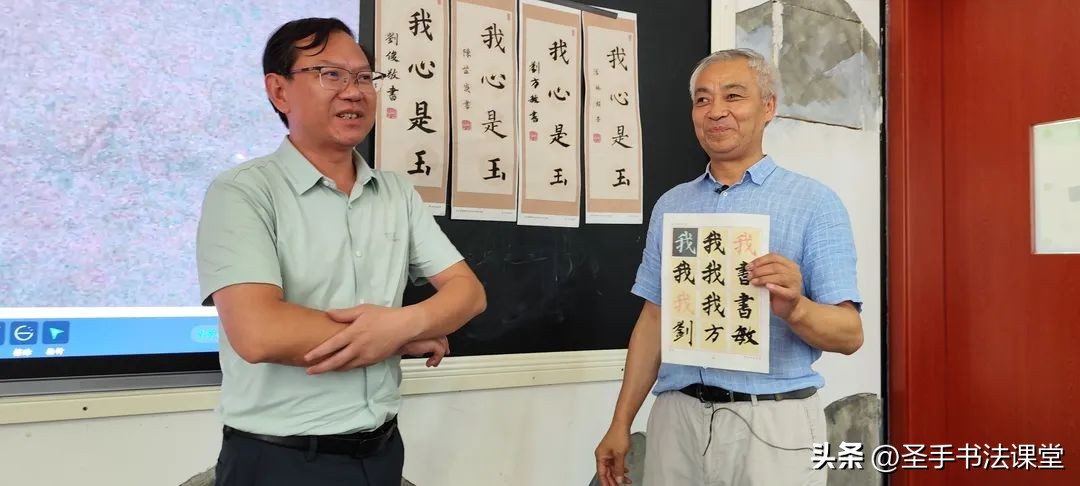 我心是玉
我心是玉
我心是玉
劉方敏書
我心是玉
我我我
我我書
我我書
劉方敏
头条 @圣手书法课堂